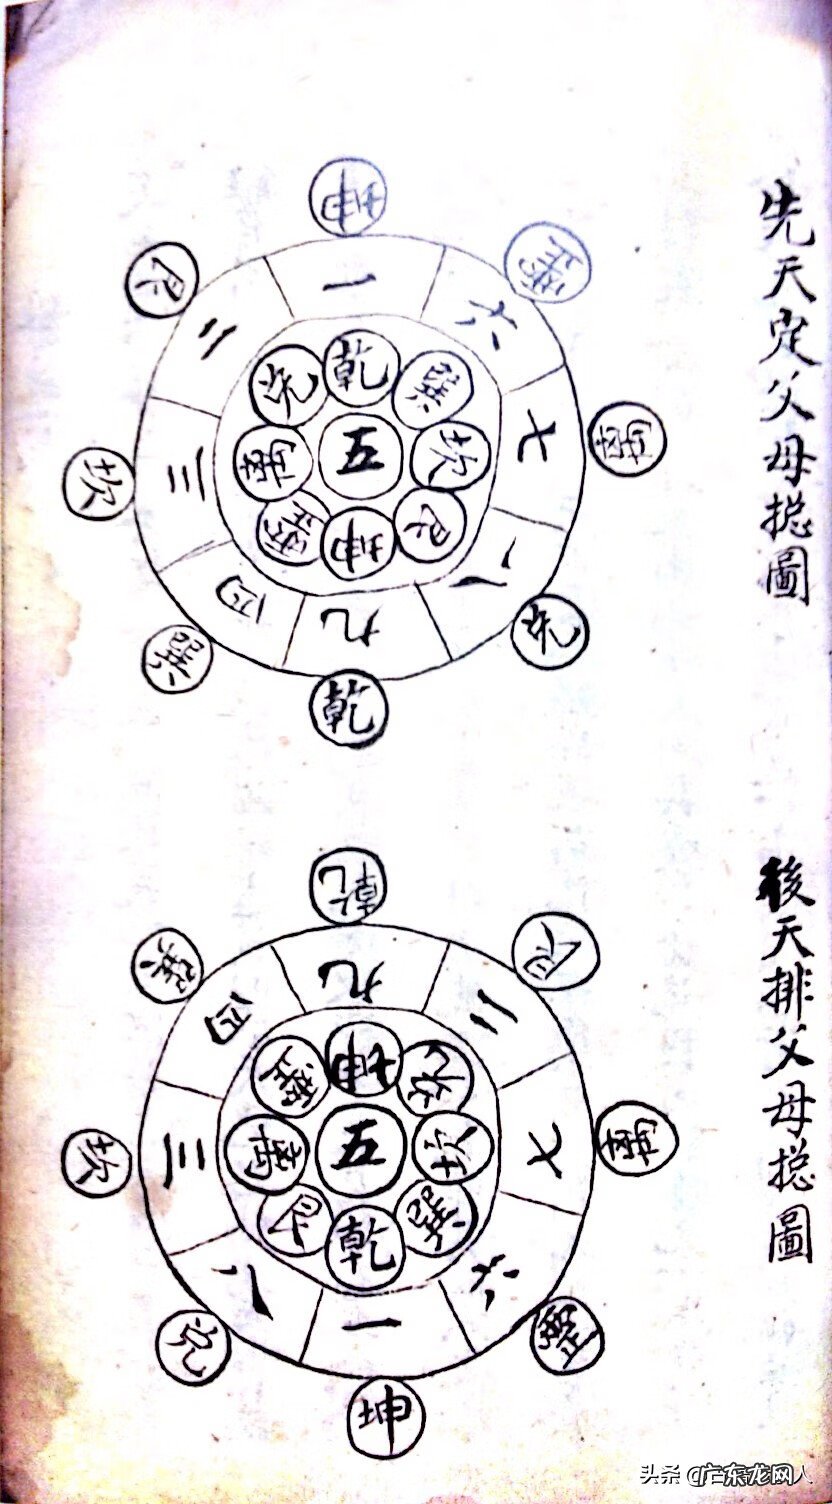 先天定父母摠圖
坤
震
離
兌
乾
巽
坎
艮
一
六
七
八
九
四
三
二
乾
巽
坎
艮
坤
震
離
兌
五
後天排父母摠圖
乾
艮
離
震
坤
兌
坎
巽
九
二
七
六
一
八
三
四
坤
兌
坎
巽
乾
艮
離
震
五
头条 @广东龙网人